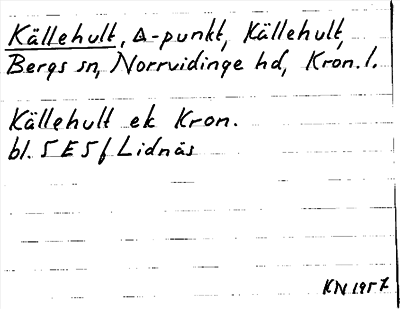 Källehult, Δ-punkt, Källehult,
Bergs sn, Norrvidinge hd, Kron. l.
Källehult ek Kron.
bl. 5 E 5 f Lidnäs
KN 1957